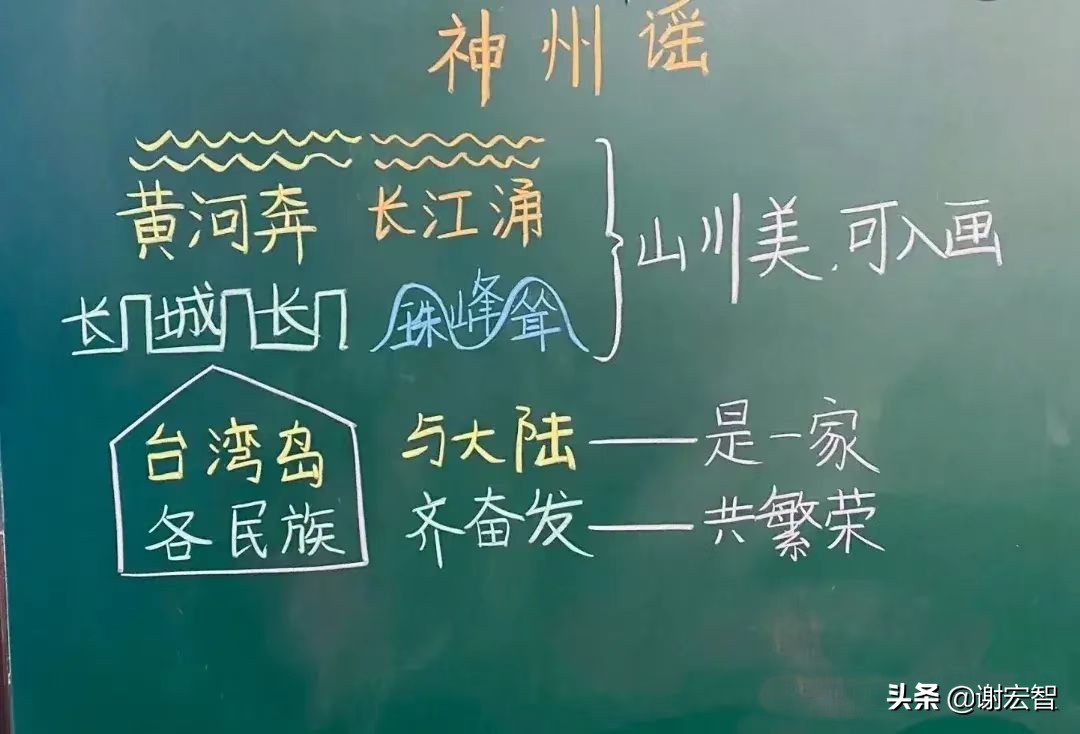 神州谣
黄河奔 长江涌
长城长 珠峰耸
山川美,可入画
台湾岛 与大陆——是一家
各民族 齐奋发——共繁荣
头条 @谢宏智